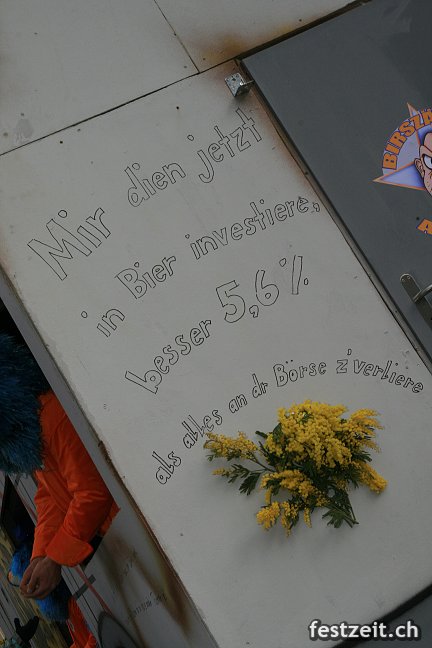 Mir dien jetzt
in Bier investiere,
besser 5,6%
als alles an dr Börse z'verliere
BIRSZ
A
festzeit.ch